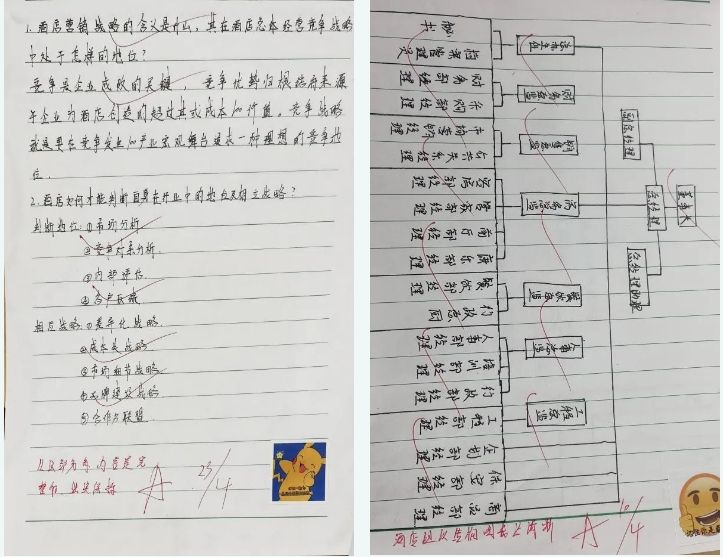 1.酒店营销战略的含义是什么,其在酒店总体经营竞争战略
中处于怎样的地位?
竞争是企业成败的关键,竞争优势归根结底来源
于企业为酒店创造的超过其成本的价值。竞争战略
就是要在竞争发生的产业宏观舞台追求一种理想的竞争地
位。
2.酒店如何才能判断自身在行业中的地位及相应战略?
判断地位:①市场分析.
②竞争对手分析.
③内部评估
④客户反馈
相应战略:①差异化战略.
②成本是战略
③市场细节战略.
④品牌建设战略
⑤合作与联盟.
内容是完
整的,继续保持
A
23/4
董事长
总经理
副总经理
总经理助理
办公室主任
财务总监
销售总监
房务总监
餐饮总监
人事总监
工程总监
秘书
档案管理员
财务部经理
采购部经理
市销部经理
公共关系部经理
客房部经理
前厅部经理
康乐部经理
餐饮部经理
行政总厨
人事部经理
培训部经理
行政部经理
工程部经理
企划部经理
保安部经理
商品部经理
酒店组织结构图表达清晰
A
10/4